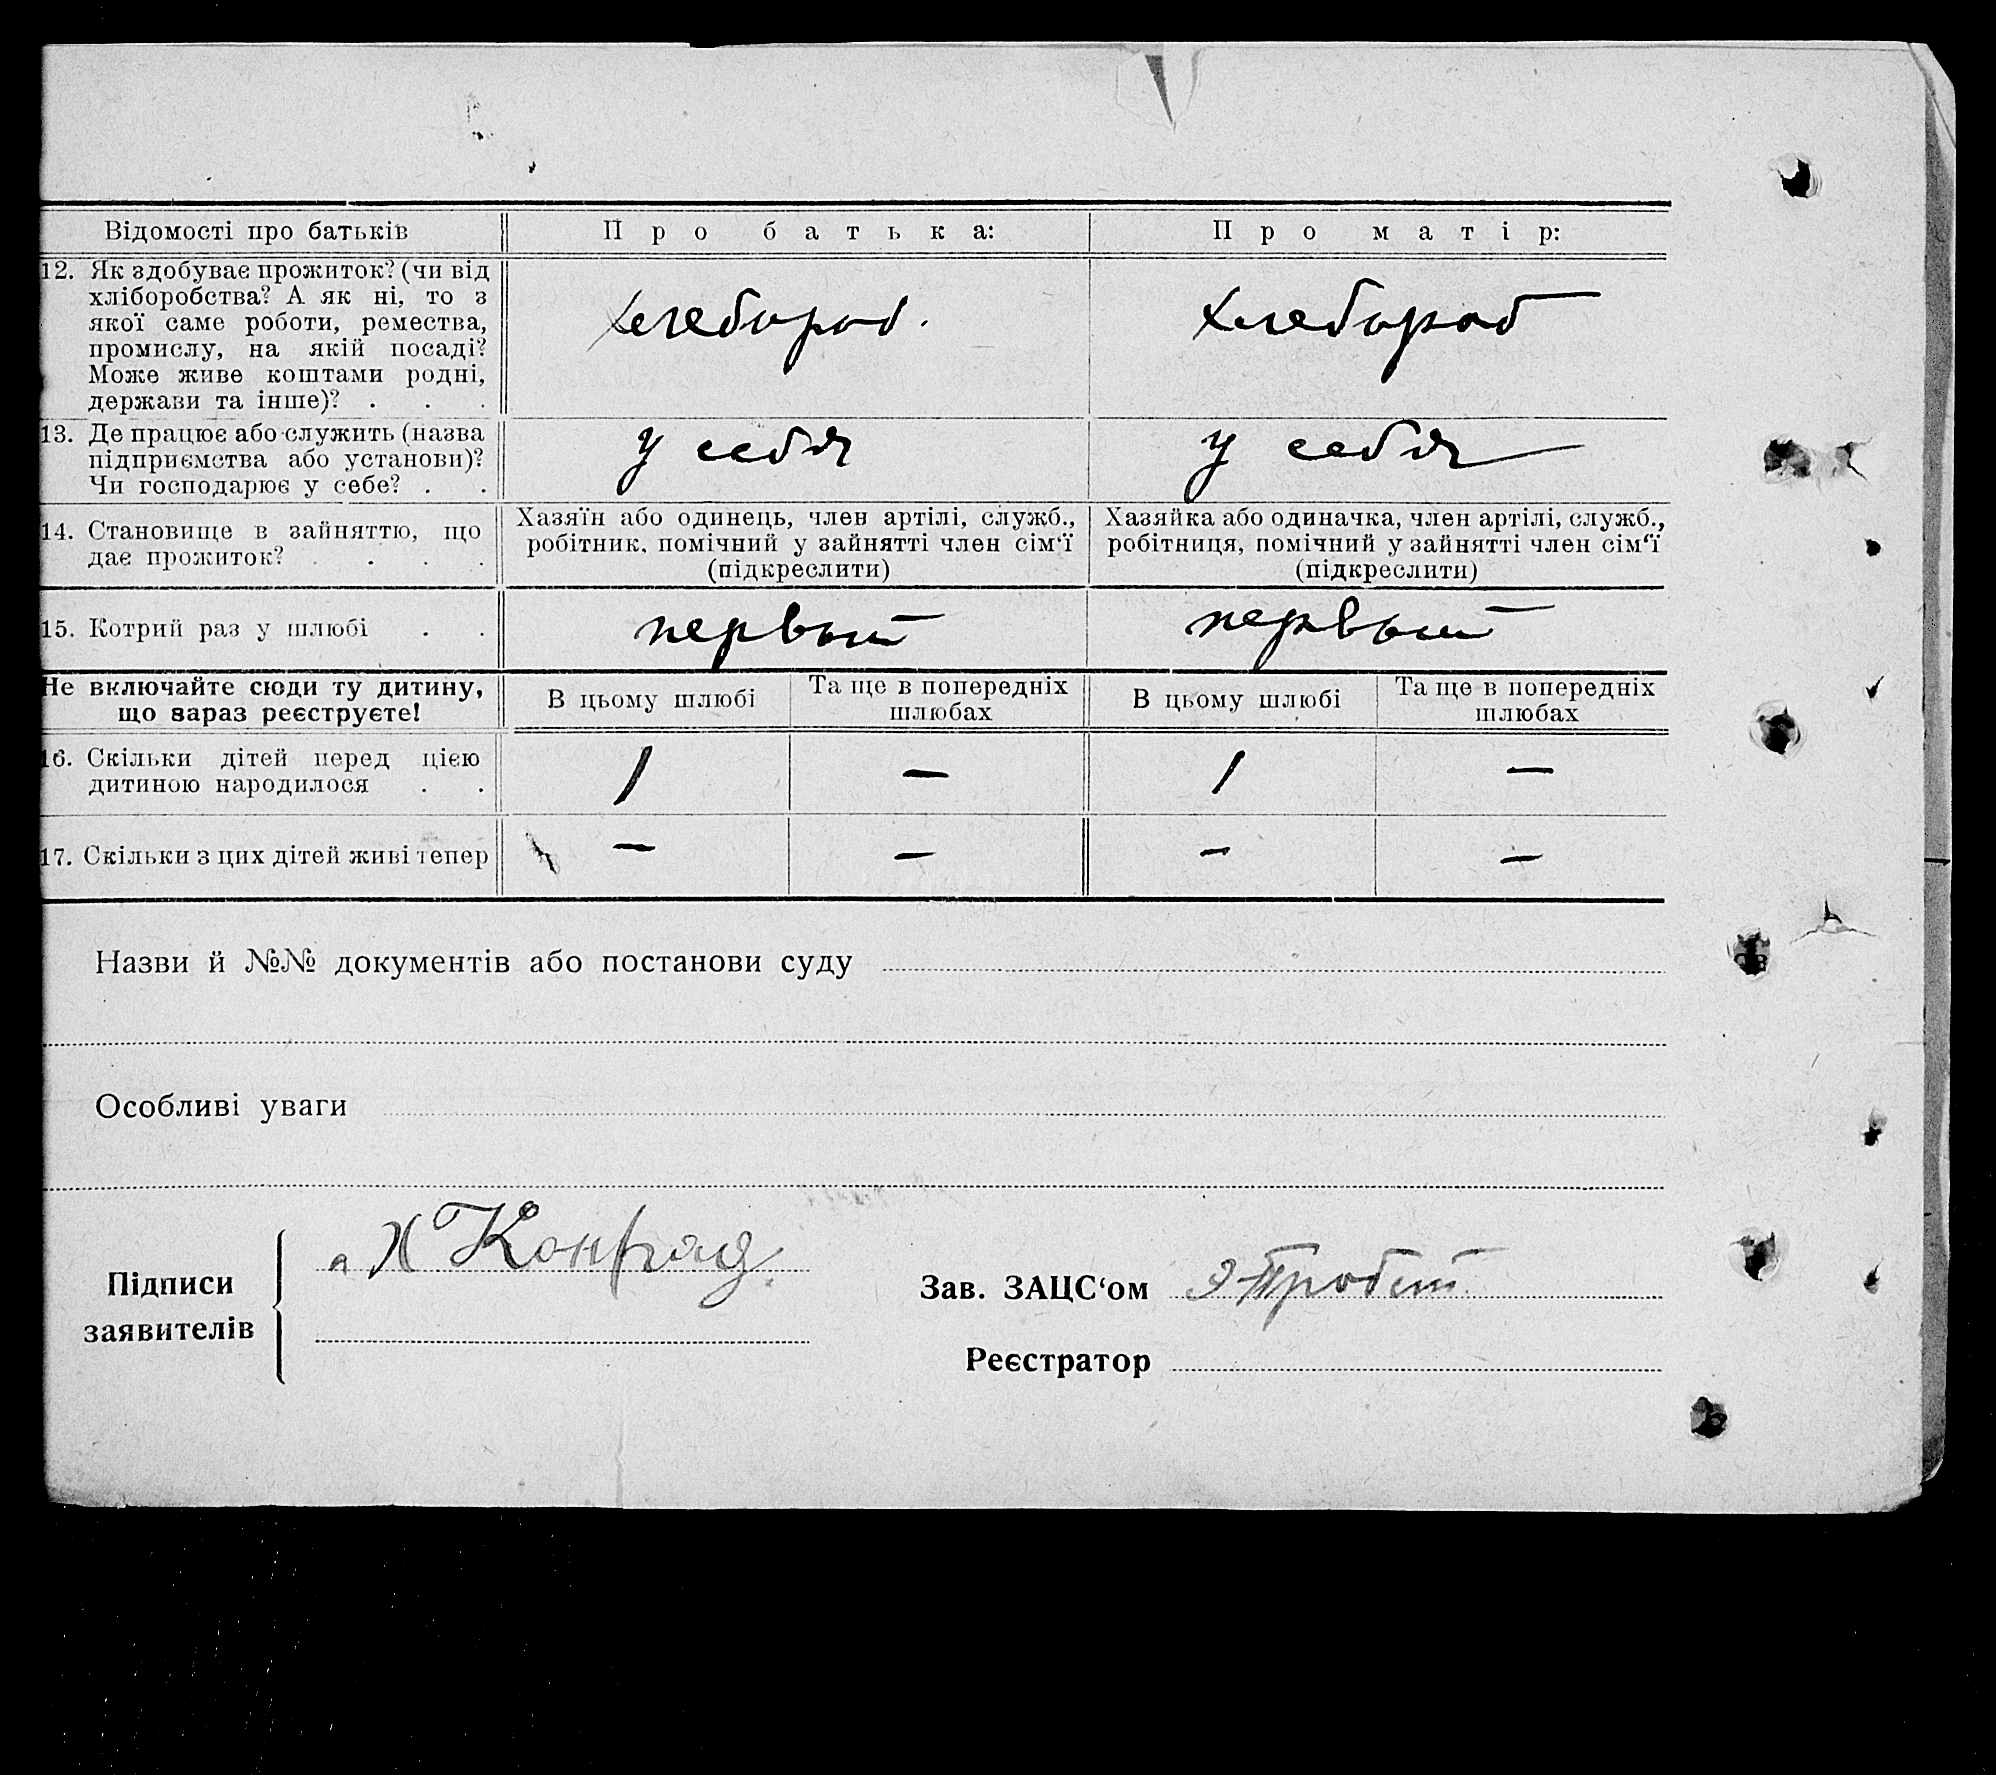 Відомості про батьків Про батька: Про матір:
12. Як здобуває прожиток? (чи від
хліборобства? А як ні, то з
якої саме роботи, ремества,
промислу, на якій посаді?
Може живе коштами родні,
держави та інше)? . . .
хлебороб. хлебороб
13. Де працює або служить (назва
підприємства або установи)?
Чи господарює у себе? . .
у себя у себя
14. Становище в зайняттю, що
дає прожиток? . . . .
Хазяїн або одинець, член артілі, служб.,
робітник, помічний у зайнятті член сім‘ї
(підкреслити)
Хазяйка або одиначка, член артілі, служб.,
робітниця, помічний у зайнятті член сім‘ї
(підкреслити)
15. Котрий раз у шлюбі . . первый первый
Не включайте сюди ту дитину,
що зараз реєструєте!
В цьому шлюбі
Та ще в попередніх
шлюбах
В цьому шлюбі
Та ще в попередніх
шлюбах
16. Скільки дітей перед цією
дитиною народилося . .
1 — 1 —
17. Скільки з цих дітей живі тепер — — — —
Назви й №№ документів або постанови суду
Особливі уваги
Підписи
заявителів
Конрад
Зав. ЗАЦС‘ом
Реєстратор